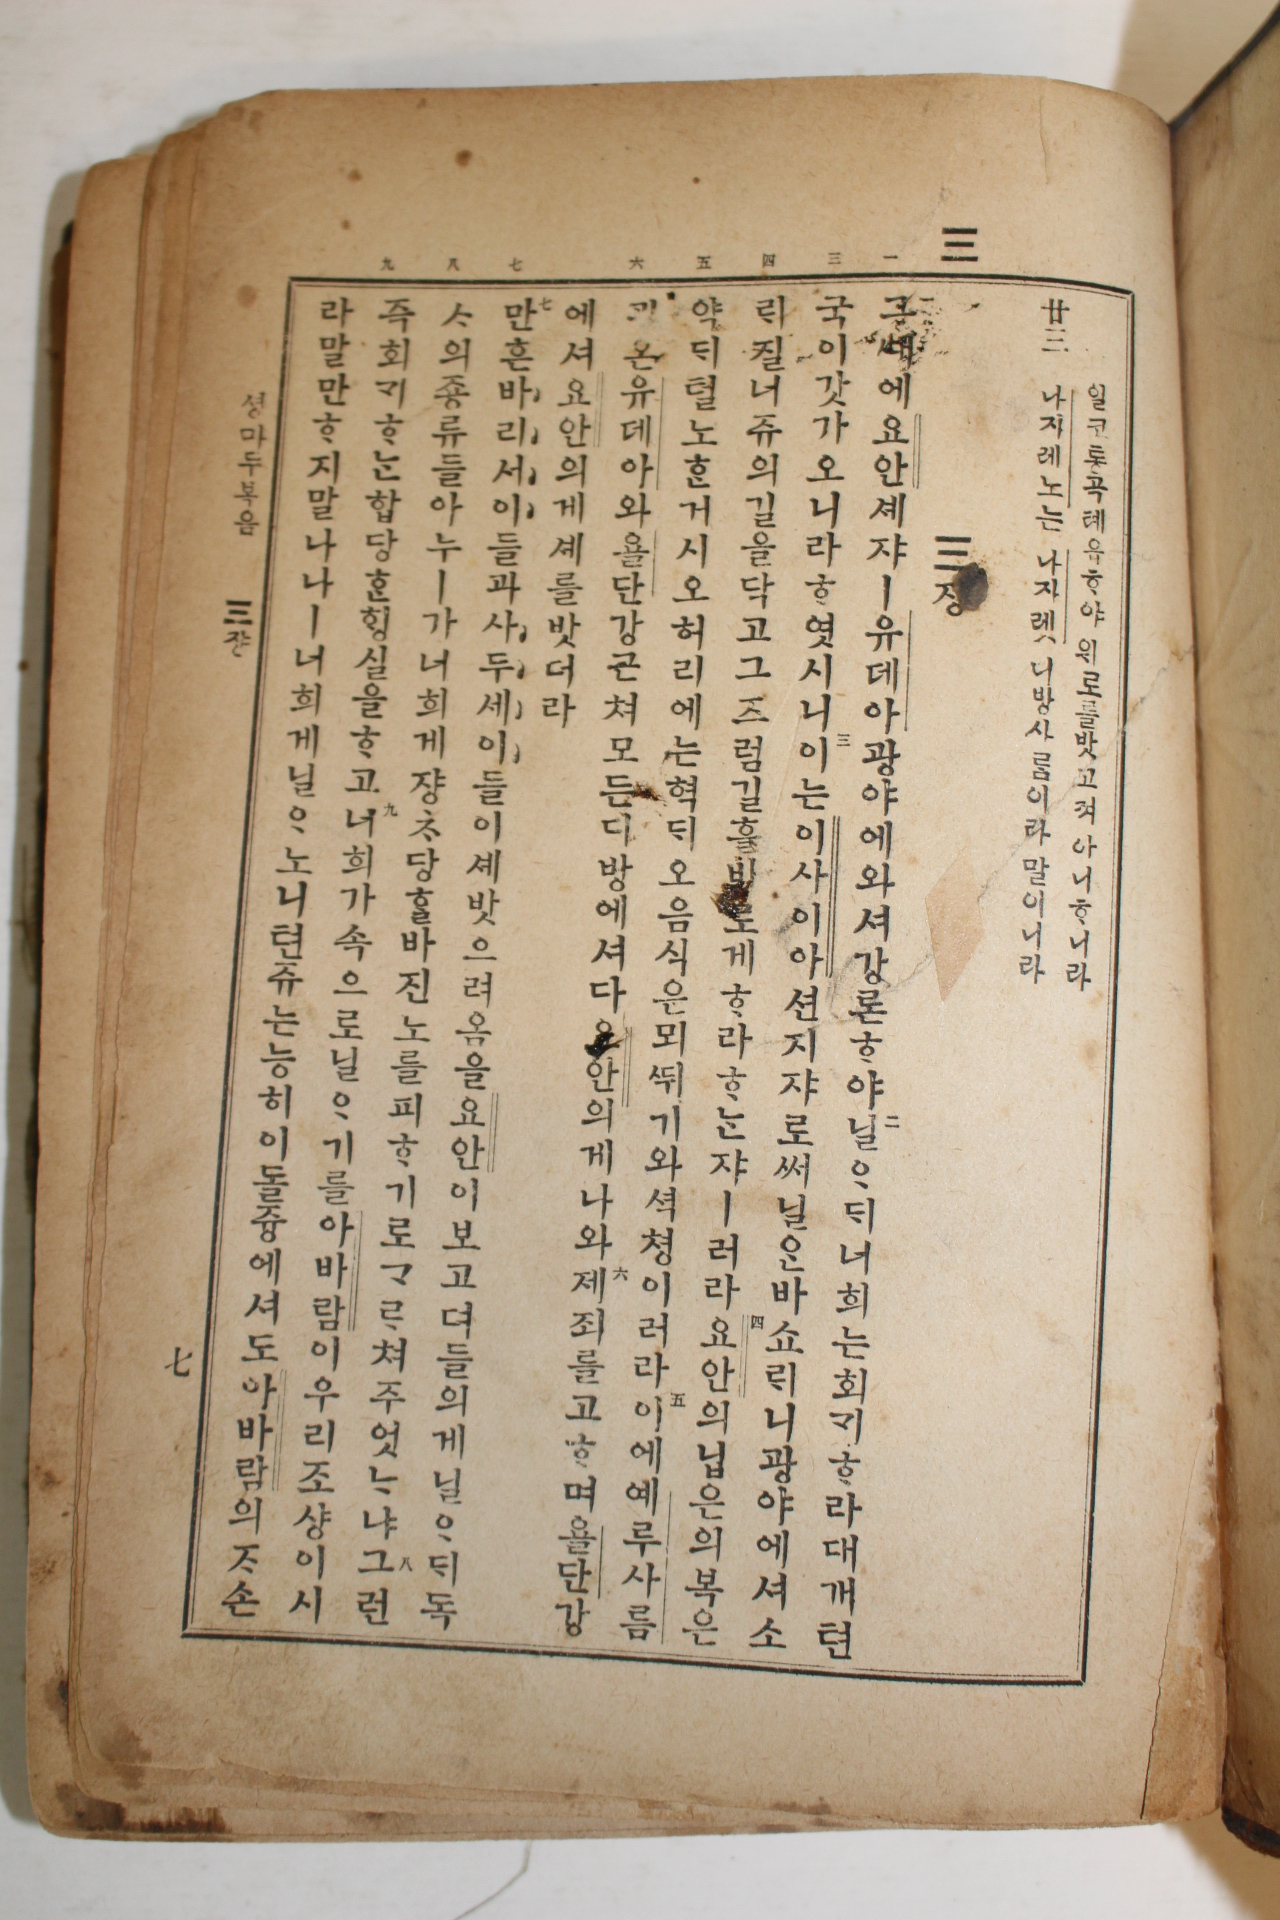 三
일코롯곡톄유ᄒᆞ야 위로를밧고져 아니ᄒᆞ니라
廿三 나자레노는 나자렛 디방사ᄅᆞᆷ이라 말이니라
三쟝
에요안셰쟈ㅣ유데아광야에와셔강론ᄒᆞ야 二닐ᄋᆞᄃᆡ너희는회ᄀᆡᄒᆞ라대개텬
국이갓가오니라ᄒᆞ엿시니 三이는이사이아션지쟈로써닐ᄋᆞᆫ바쇼ᄅᆡ니광야에셔소
ᄅᆡ질너쥬의길을닥고그즈럼길흘바로게ᄒᆞ라ᄒᆞᄂᆞᆫ쟈ㅣ러라 四요안의닙은의복은
약ᄃᆡ털노ᄒᆞᆫ거시오허리에는혁ᄃᆡ오음식은뫼ᄯᅱ기와셕쳥이러라 五이에예루사름
온유데아와욜단강근쳐모든디방에셔다요안의게나와 六제죄를고ᄒᆞ며욜단강
에셔요안의게셰를밧더라
七만흔바리서이들과사두세이들이셰밧으려옴을요안이보고뎌들의게닐ᄋᆞᄃᆡ독
ᄉᆞ의죵류들아누ㅣ가너희게쟝ᄎᆞ당ᄒᆞᆯ바진노를피ᄒᆞ기로ᄀᆞᄅᆞ쳐주엇ᄂᆞ냐 八그런
즉회ᄀᆡᄒᆞᄂᆞᆫ합당ᄒᆞᆫᄒᆡᆼ실을ᄒᆞ고 九너희가속으로닐ᄋᆞ기를아바람이우리조샹이시
라말만ᄒᆞ지말나나ㅣ너희게닐ᄋᆞ노니텬쥬는능히이돌즁에셔도아바람의ᄌᆞ손
一 三 四 五 六 七 八 九
셩마두복음 三쟝
七